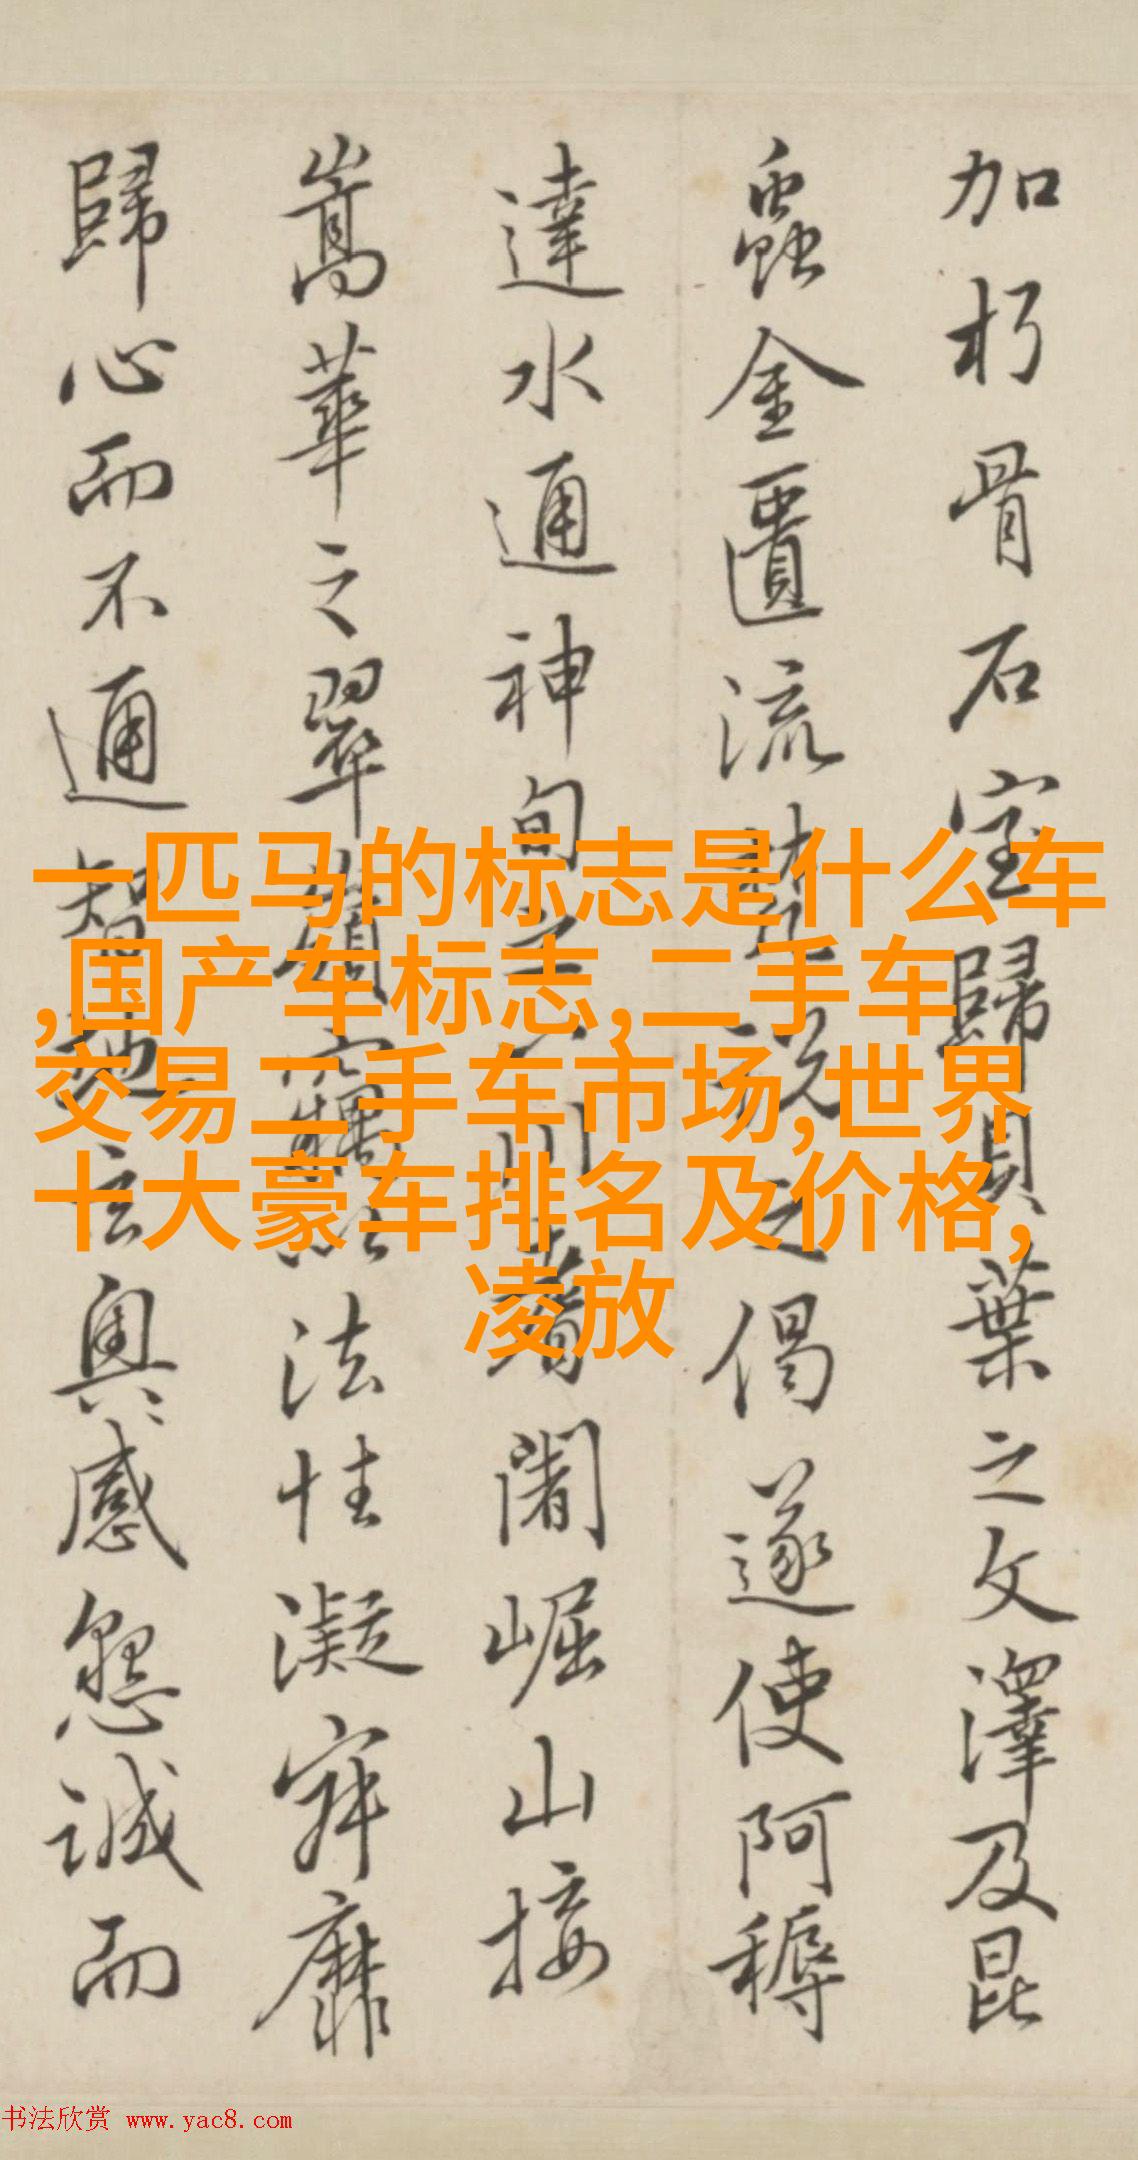 加朽骨石室歸貝葉之文澤及昆
蟲金匱流梵説之偈遂使阿耨
達水通神甸之八川耆闍崛山接
嵩華之翠嶺竊以法性凝寂靡
歸心而不通智地玄奧感懇誠而
一匹马的标志是什么车
,国产车标志,二手车
交易二手车市场,世界
十大豪车排名及价格,
凌放
书法欣赏 www.yac8.com